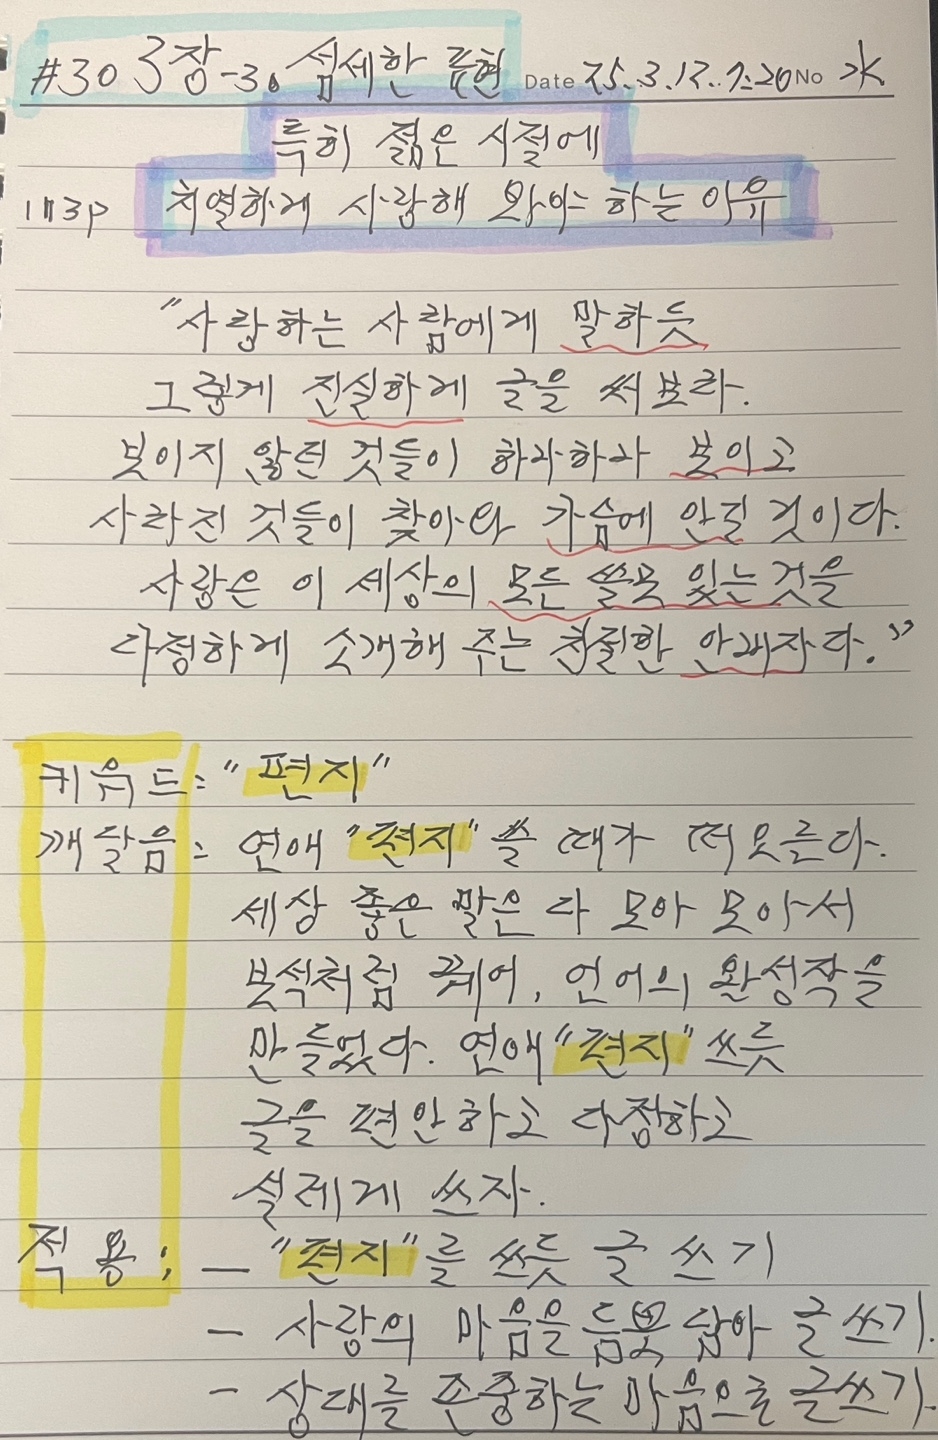 #30 3장-3. 섬세한 표현 Date 25.3.12. 7:20 No 水
특히 젊은 시절에
173p 치열하게 사랑해 봐야 하는 이유
"사랑하는 사람에게 말하듯
그렇게 진실하게 글을 써보라.
보이지 않던 것들이 하나하나 보이고
사라진 것들이 찾아와 가슴에 안길 것이다.
사랑은 이 세상의 모든 쓸모 있는 것을
다정하게 소개해 주는 친절한 안내자다."
키워드: "편지"
깨달음: 연애 "편지" 쓸 때가 떠오른다.
세상 좋은 말은 다 모아 모아서
보석처럼 꿰어, 언어의 완성작을
만들었다. 연애 "편지" 쓰듯
글을 편안하고 다정하고
설레게 쓰자.
적용: - "편지"를 쓰듯 글 쓰기
- 사랑의 마음을 듬뿍 담아 글 쓰기.
- 상대를 존중하는 마음으로 글쓰기.